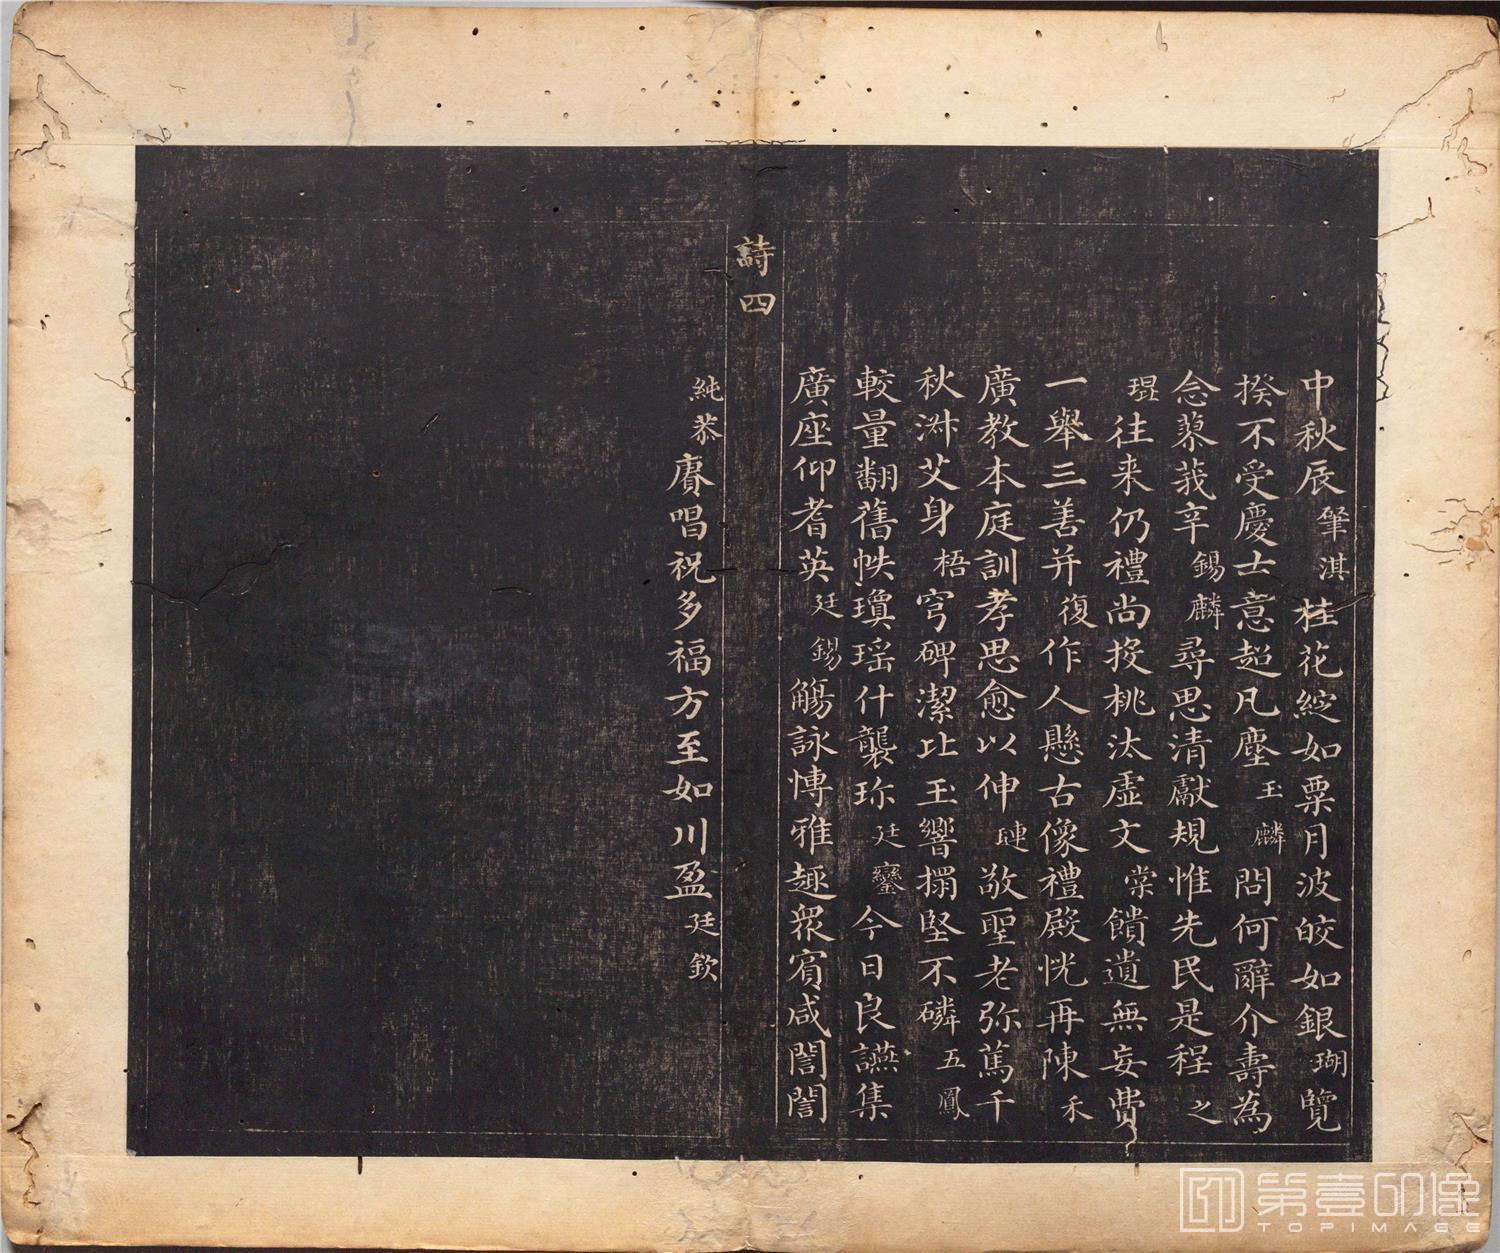 中秋辰肇淇桂花綻如粟月波皎如銀瑚覽
揆不受慶士意超凡塵玉麟問何辭介壽為
念蓼莪辛錫麟尋思清獻規惟先民是程之
琨往来仍禮尚投桃汰虛文棠饋遺無妄費
一舉三善并復作人懸古像禮殿恍再陳禾
廣教本庭訓孝思愈以伸璉敬聖老弥篤千
秋淋艾身梧穹碑潔比玉響搨堅不磷五鳳
較量翻舊帙瓊瑶什襲珎廷鑾今日良讌集
廣座仰耆英廷錫觴詠慱雅趣衆賓咸誾誾
詩四
純恭賡唱祝多福方至如川盈廷欽
第壹印像
TOPIMAGE